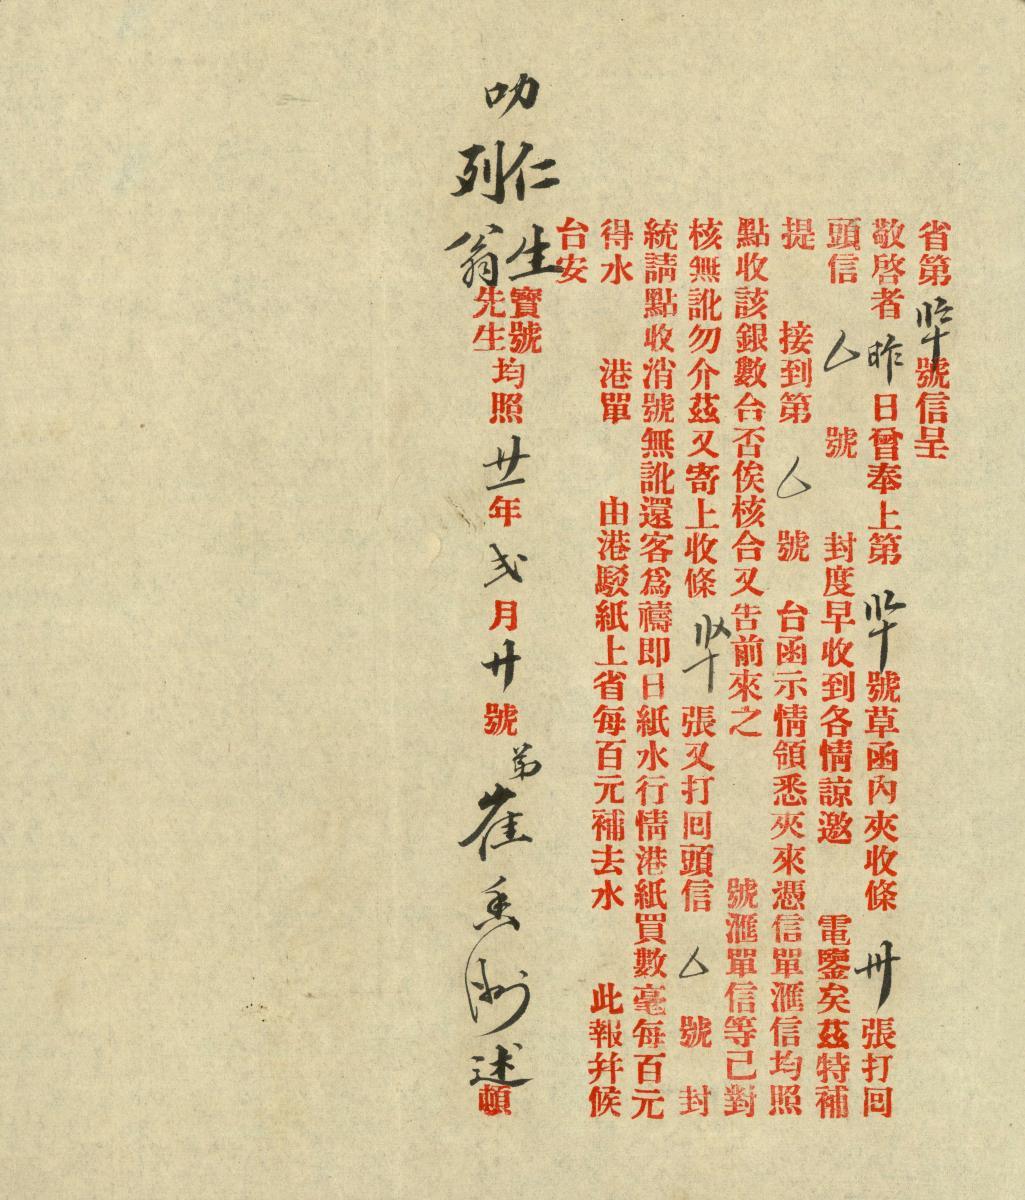 省第 號信呈
敬啓者昨日曾奉上第 號草函內夾收條 卅 張打囘
頭信 厶 號 封度早收到各情諒邀 電鑒矣茲特補
提 接到第 厶 號 台函示情領悉夾來憑信單滙信均照
點收該銀數台否俟核合又吿前來之 號滙單信等己對
核無訛勿介茲又寄上收條 張又打囘頭信 厶 號 封
統請點收消號無訛還客爲禱即日紙水行情港紙買數毫每百元
得水 港單 由港駁紙上省每百元補去水 此報幷候
台安
叻
仁生寶號
列翁先生
均照 廿一年弍月廿號 弟崔 洲述頓